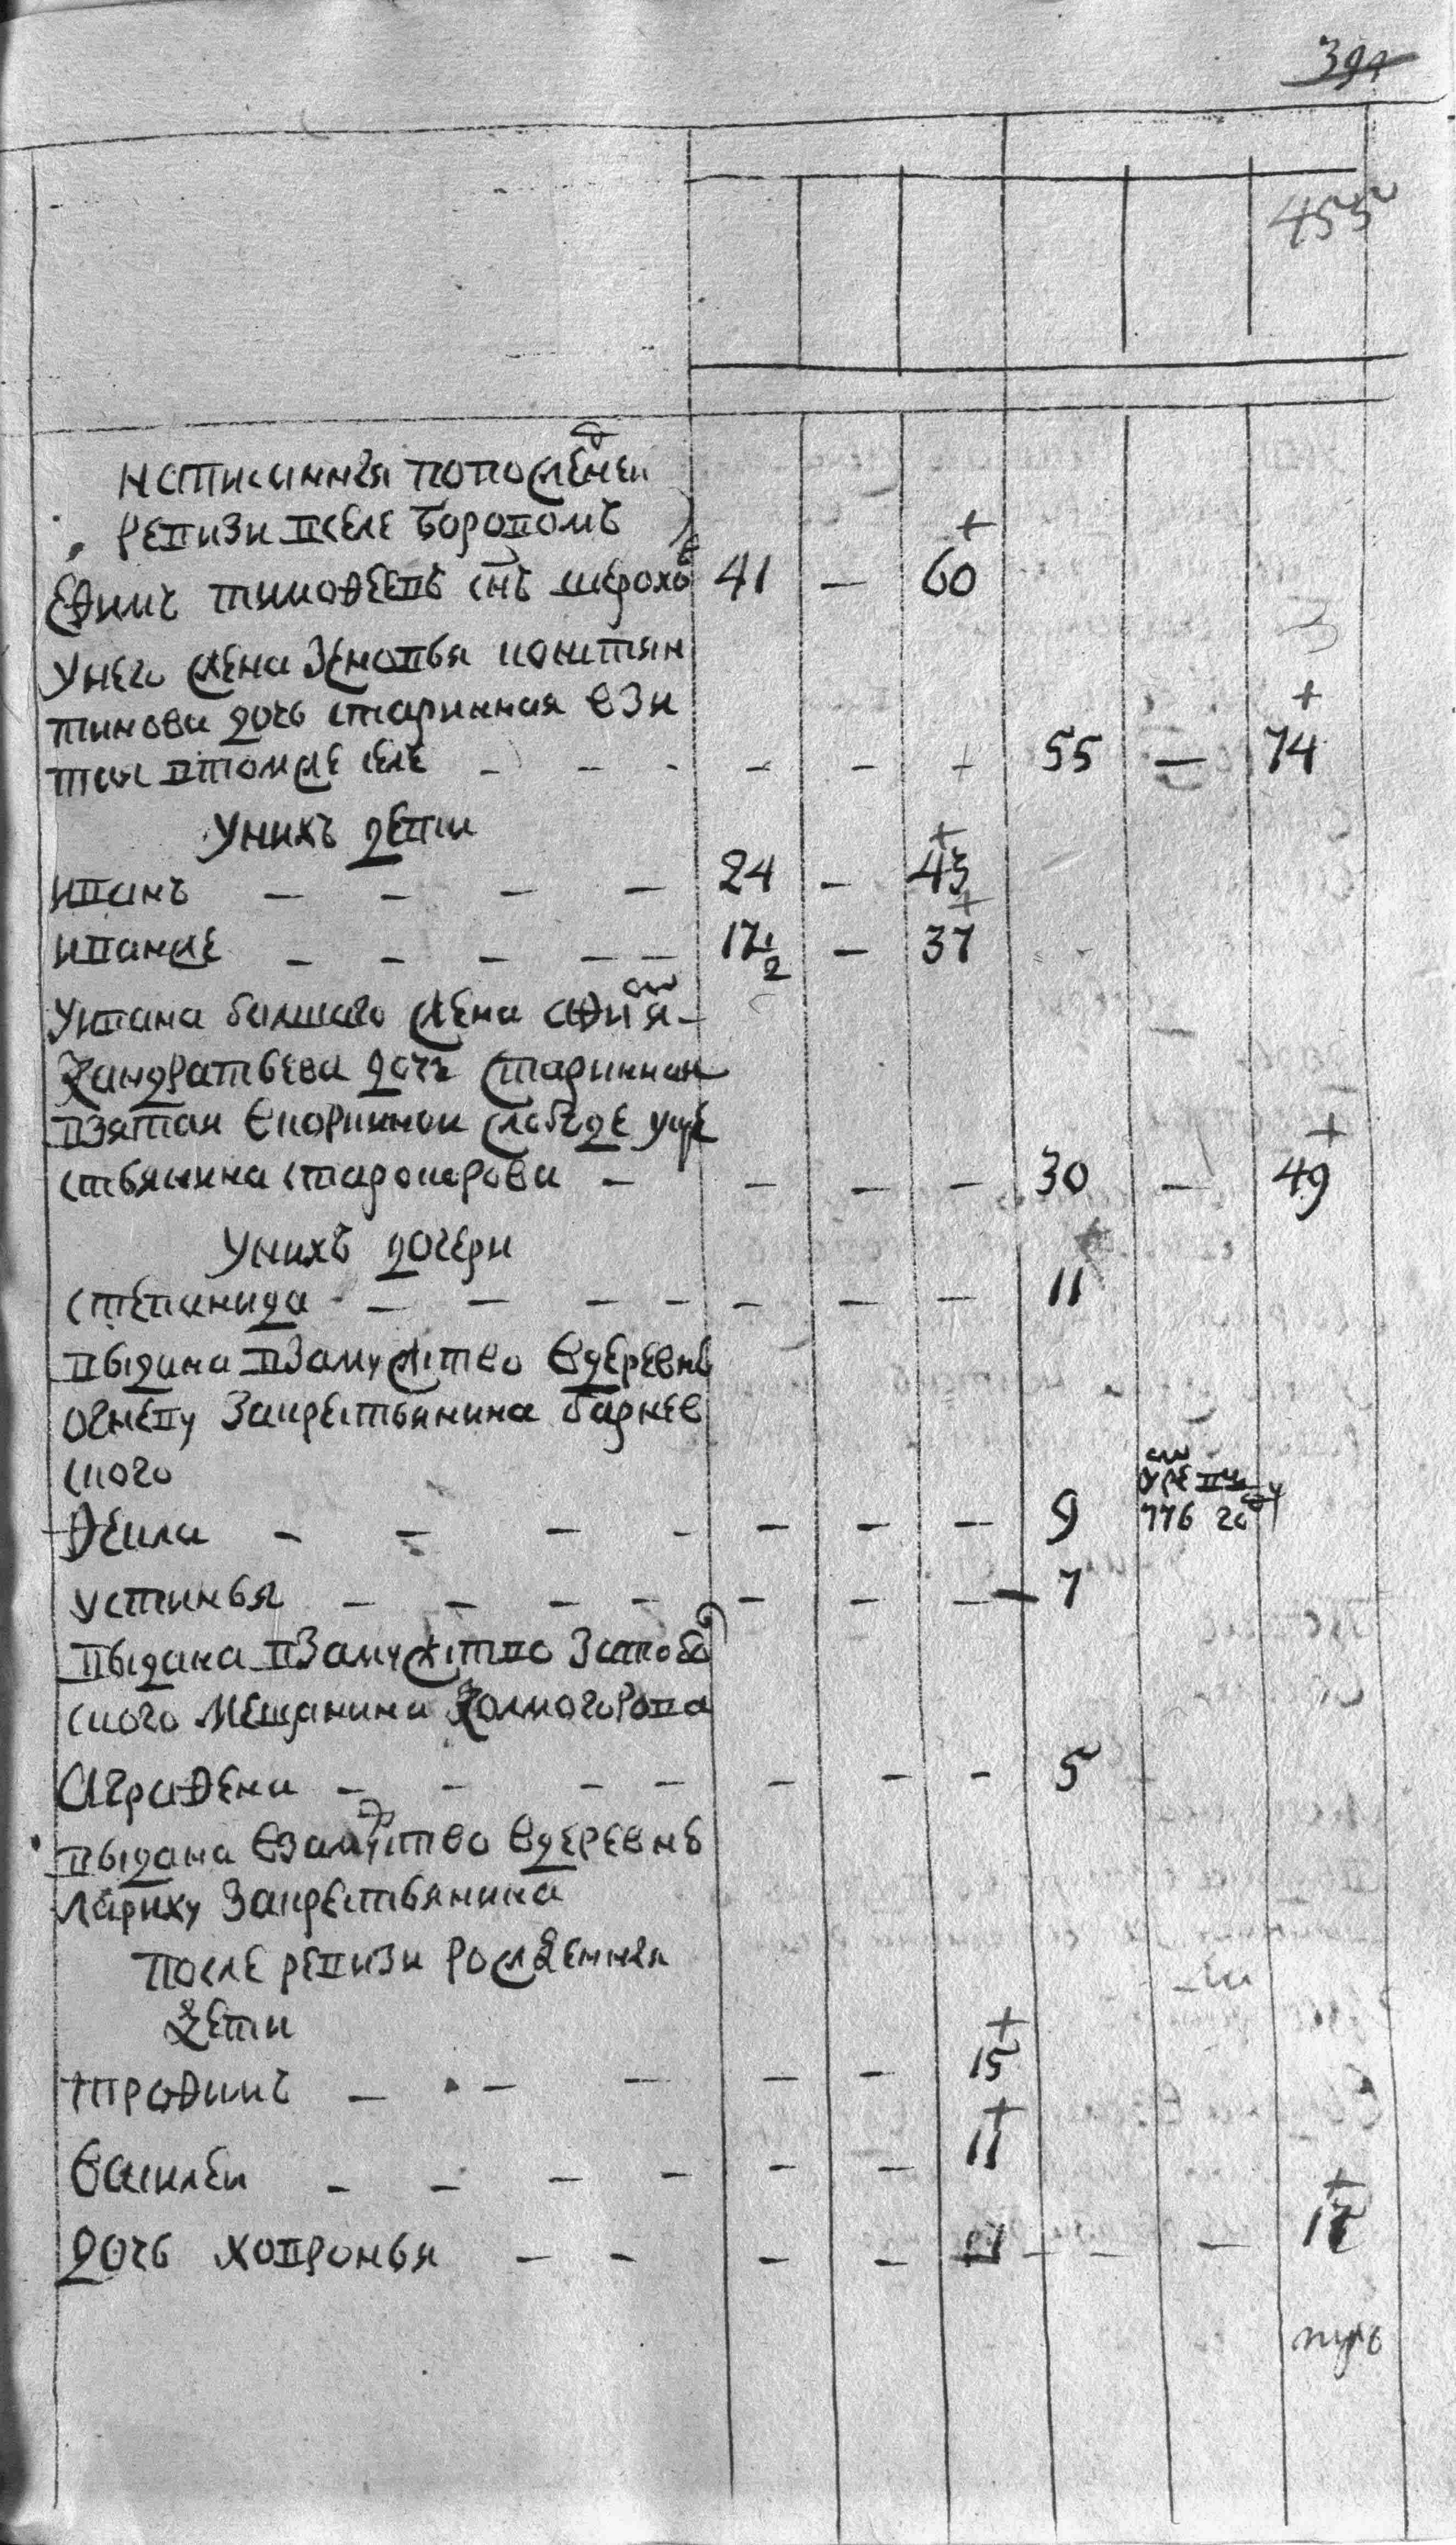 394
455
написанныя попоследнеи
ревизи вселе боровомъ
Ефимъ тимофеевъ снъ шерохо 41 — 60
Унего жена Зеновья констян
тинова дочь старинная взя
тая втомже селе — — — — — — 55 — 74
Унихъ дети
иванъ — — — — 24 — 43
иванже — — — — — 17 1/2 — 37
Уивана болшаго жена
Кандратьева дочь старинная
взятая
стьянина — — — — 30 — 49
Унихъ дочери
степанида — — — — — — — 11
выдана взамужство вдеревню
очневу закрестьянина барнев
ского
Фекла — — — — — — — 9 776 году
устинья — — — — — — — 7
выдана взамужство
ского мещанина Колмогорова
Аграфена — — — — — — — 5
выдана взамуство вдеревню
Лариху Закрестьянина
после ревизи рожденныя
дети
трофимъ — — — — — 15
василеи — — — — — — 11
дочь ховронья — — — — — — — — 17